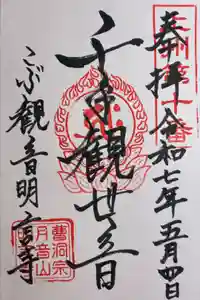 奉拝 令和七年五月四日
千手観世音
こぶ観音明言寺
曹洞宗
月音山